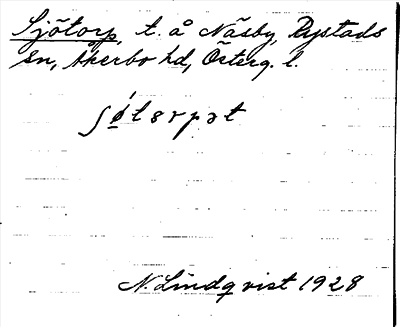 Sjötorp, t. å Näsby, Rystads
sn, Åkerbo hd, Österg. l.
ʃǿtɵrpət
N. Lindqvist 1928